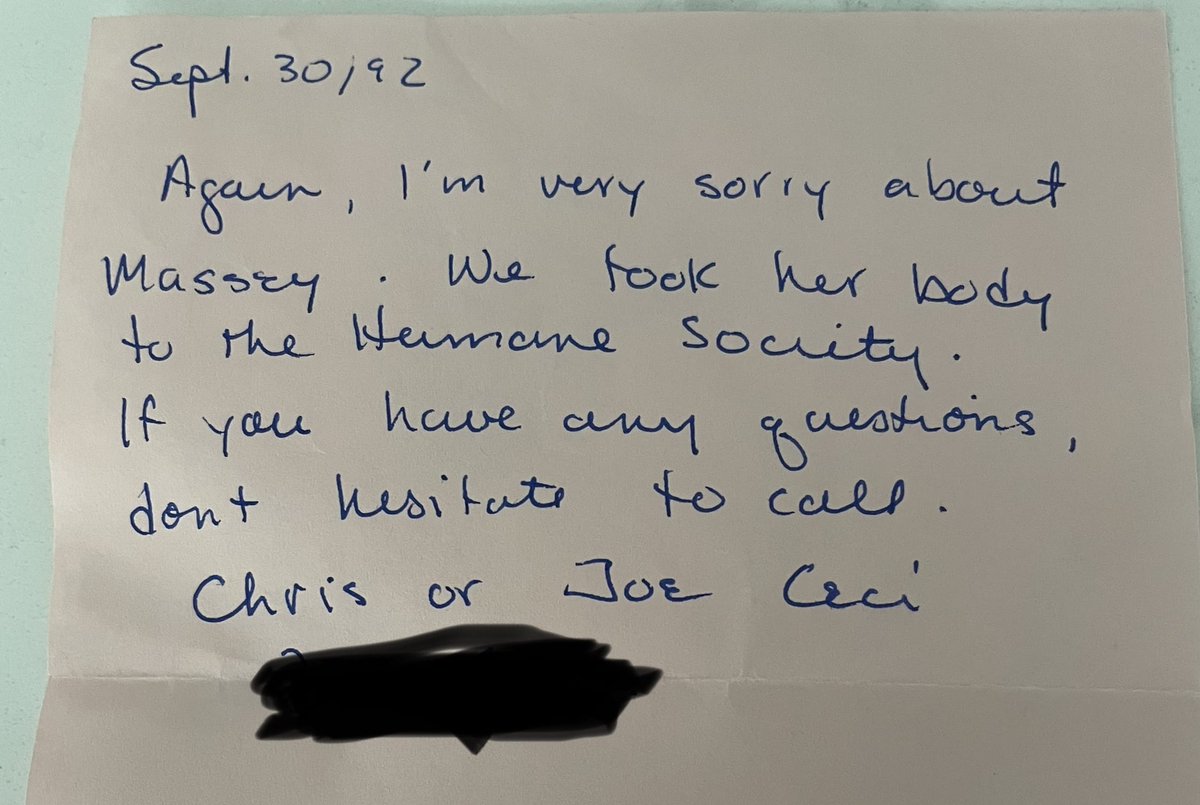 Sept. 30/92
Again, I'm very sorry about
Massey. We took her body
to the Humane Society.
If you have any questions,
don't hesitate to call.
Chris or Joe Ceci